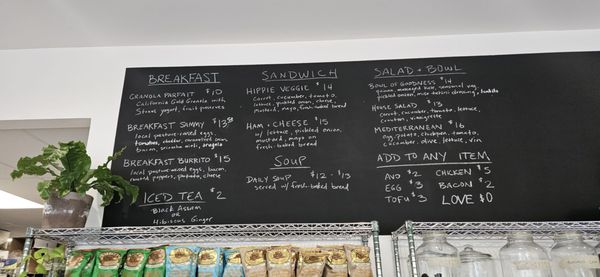 BREAKFAST
GRANOLA PARFAIT $10
California Gold Granola with
Straus yogurt, fruit preserves
BREAKFAST SAMMY $13.50
local pasture-raised eggs,
tomatoes, cheddar, caramelized onion
bacon, sriracha aioli, arugula
BREAKFAST BURRITO $15
local pasture-raised eggs, bacon,
roasted peppers, potatoes, cheese
ICED TEA $2
Black Assam
or
Hibiscus Ginger
SANDWICH
HIPPIE VEGGIE $14
Carrot, cucumber, tomato,
lettuce, pickled onion, cheese,
mustard, mayo, fresh-baked bread
HAM + CHEESE $15
w/ lettuce, pickled onion,
mustard, mayo on
fresh-baked bread
SOUP
DAILY SOUP $12 - $13
served w/ fresh-baked bread
SALAD + BOWL
BOWL OF GOODNESS $14
quinoa, massaged kale, seasonal veg,
pickled onion, miso-tahini dressing
HOUSE SALAD $13
Carrot, cucumber, tomato, lettuce,
croutons, vinaigrette
MEDITERRANEAN $16
egg, potato, chickpea, tomato,
cucumber, olive, lettuce, vin
ADD TO ANY ITEM
AVO $2
EGG $3
TOFU $3
CHICKEN $5
BACON $2
LOVE $0